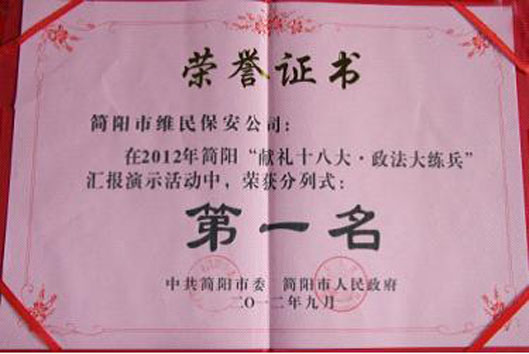 荣誉证书
简阳市维民保安公司：
在2012年简阳“献礼十八大·政法大练兵”
汇报演示活动中，荣获分列式：
第一名
中共简阳市委 简阳市人民政府
二〇一二年九月